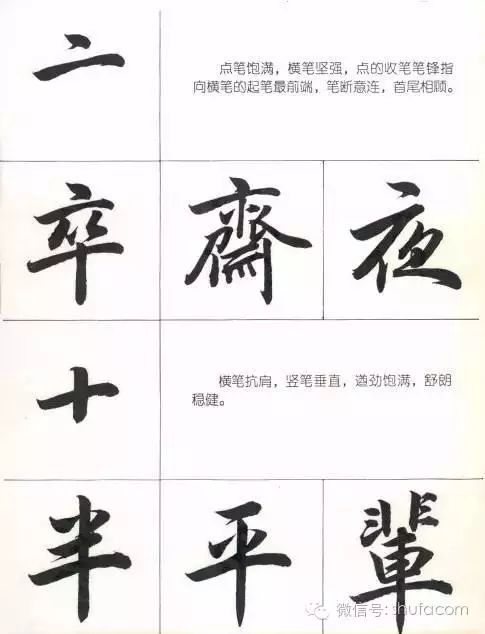 亠
点笔饱满，横笔坚强，点的收笔笔锋指
向横笔的起笔最前端，笔断意连，首尾相顾。
卒 齋 夜
十
横笔抗肩，竖笔垂直，遒劲饱满，舒朗
稳健。
半 平 輩
微信号: shufacom